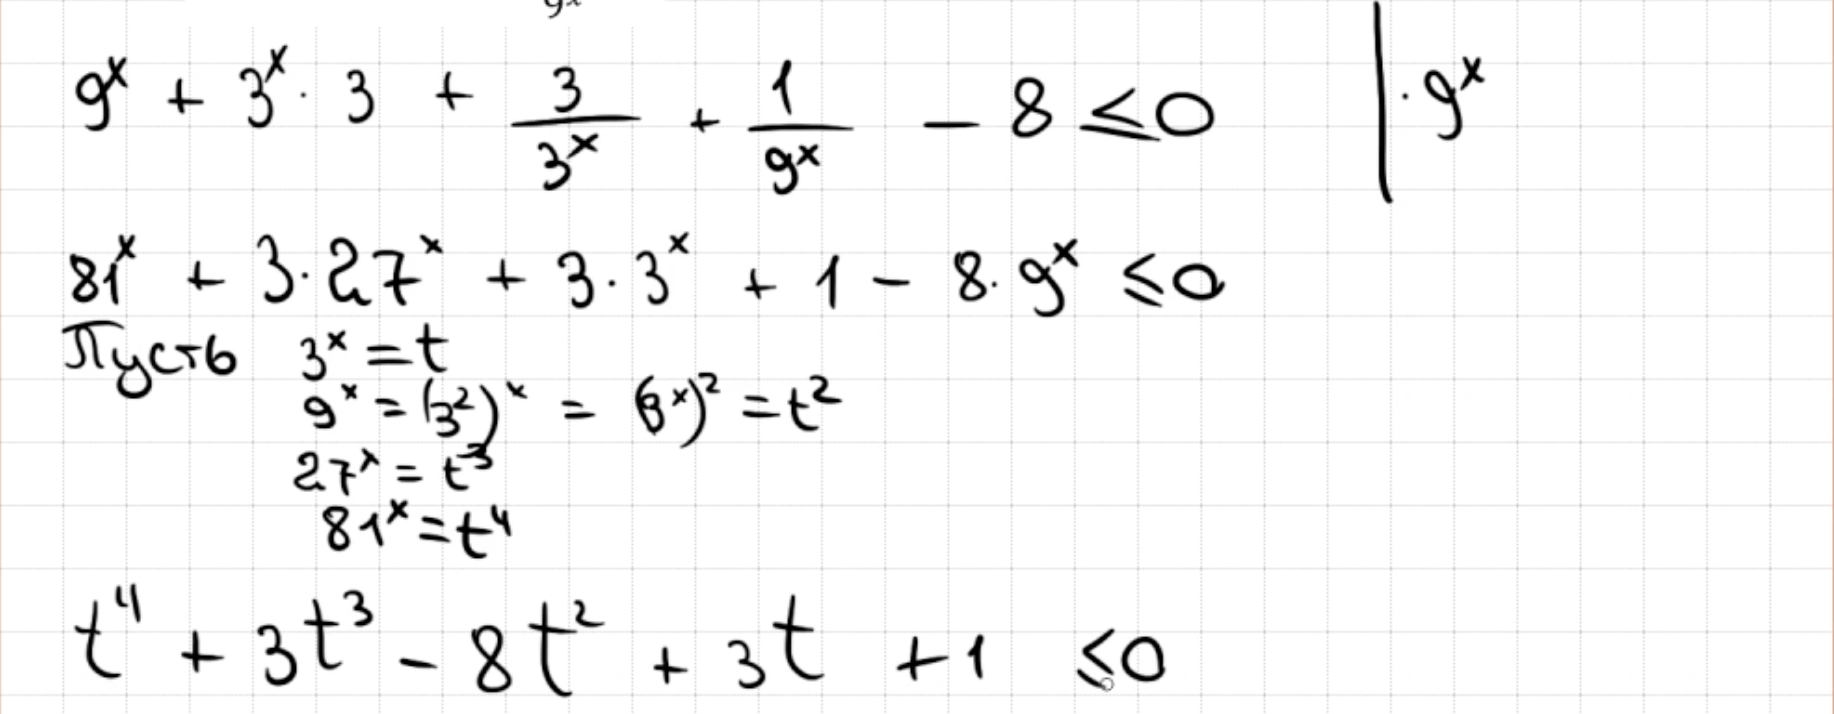 9ˣ
9ˣ + 3ˣ · 3 + 3/3ˣ + 1/9ˣ − 8 ≤ 0 | · 9ˣ
81ˣ + 3 · 27ˣ + 3 · 3ˣ + 1 − 8 · 9ˣ ≤ 0
Пусть 3ˣ = t
9ˣ = (3²)ˣ = (3ˣ)² = t²
27ˣ = t³
81ˣ = t⁴
t⁴ + 3t³ − 8t² + 3t + 1 ≤ 0